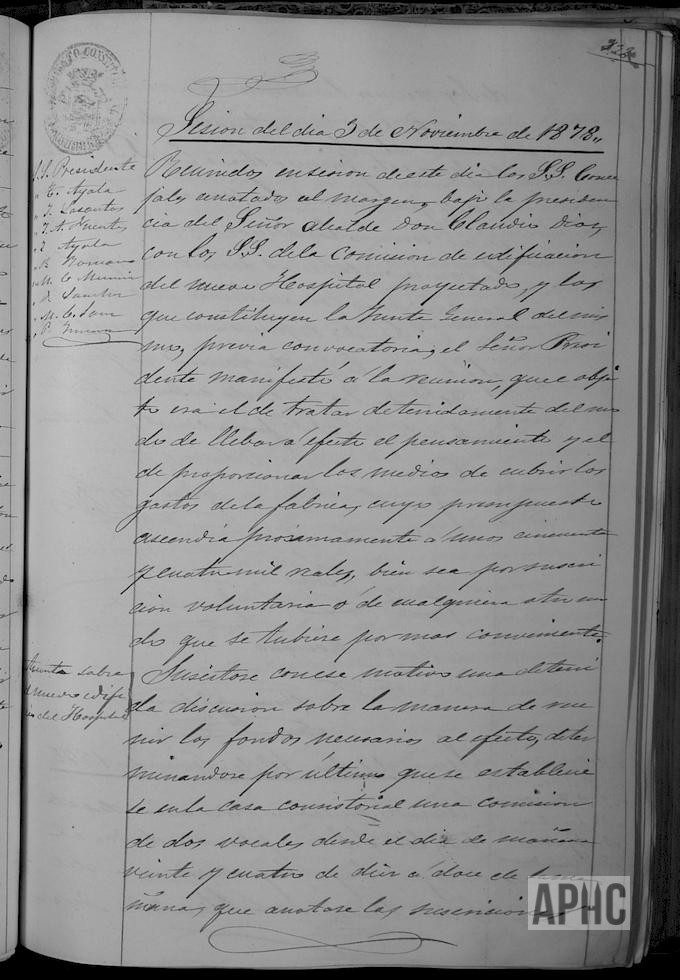 Sesion del dia 3 de Noviembre de 1878,,
S.S. Presidente
" Ayala
" Ayala
Reunidos en sesion de este dia los S.S. Conce
jales anotados al margen, bajo la presiden
cia del Señor alcalde Don Claudio Diaz,
con los S.S. de la Comision de edificacion
del nuevo Hospital proyectado, y los
que constituyen la Junta General del mis
mo, previa convocatoria, el Señor Presi
dente manifestó á la reunion, que el obje
to era el de tratar detenidamente del mo
do de llebar á efecto el pensamiento y el
de proporcionar los medios de cubrir los
gastos de la fabrica, cuyo presupuesto
ascendia procsimamente á unos cincuenta
y cuatro mil reales, bien sea por suscri
cion voluntaria ó de cualquiera otro mo
do que se tubiese por mas conveniente.
Junta sobre
el nuevo edifi
cio del Hospital
Suscitose con ese motivo una deteni
da discusion sobre la manera de reu
nir los fondos necesarios al efecto, deter
minandose por último que se establecie
se en la casa consistorial una comision
de dos vocales desde el dia de mañana
veinte y cuatro de diez á doce de la ma
ñana, que anotase las suscriciones
APHC